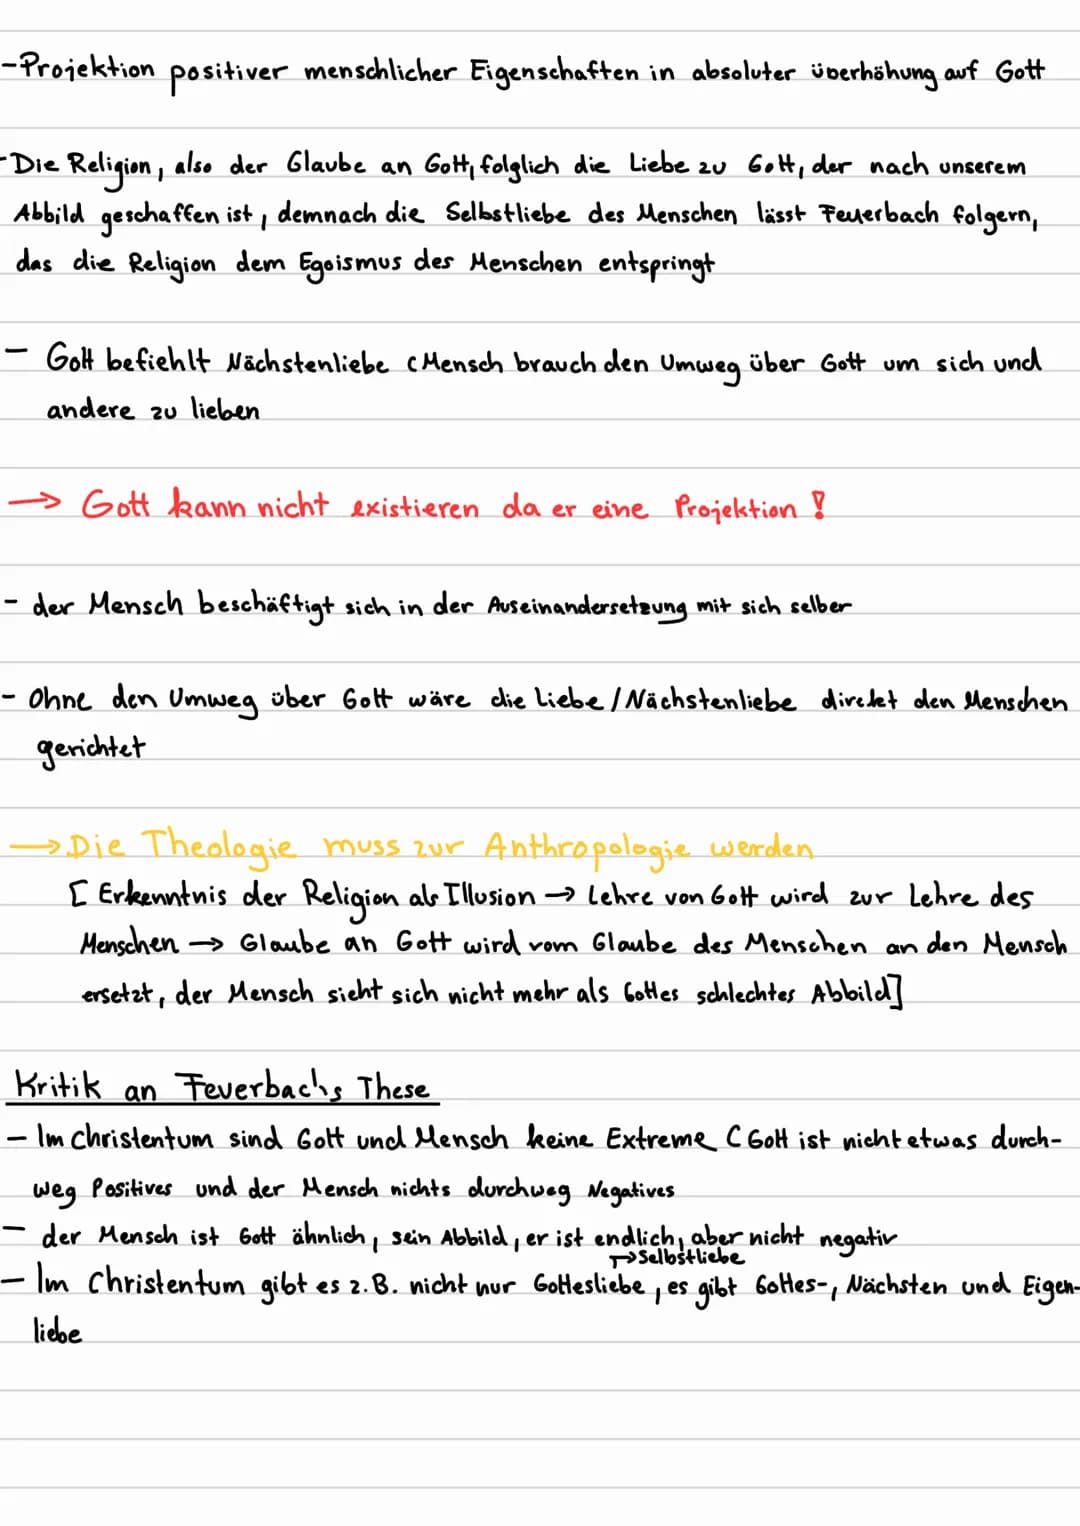 -Projektion positiver menschlicher Eigenschaften in absoluter überhöhung auf Gott
-Die Religion, also der Glaube an Gott, folglich die Liebe zu Gott, der nach unserem
Abbild geschaffen ist, demnach die Selbstliebe des Menschen lässt Feuerbach folgern,
das die Religion dem Egoismus des Menschen entspringt
- Gott befiehlt Nächstenliebe (Mensch brauch den Umweg über Gott um sich und
andere zu lieben
→ Gott kann nicht existieren da er eine Projektion !
- der Mensch beschäftigt sich in der Auseinandersetzung mit sich selber
- Ohne den Umweg über Gott wäre die Liebe/Nächstenliebe direkt den Menschen
gerichtet
→ Die Theologie muss zur Anthropologie werden
[ Erkenntnis der Religion als Illusion → Lehre von Gott wird zur Lehre des
Menschen → Glaube an Gott wird vom Glaube des Menschen an den Mensch
ersetzt, der Mensch sieht sich nicht mehr als Gottes schlechtes Abbild]
Kritik an Feuerbachs These
- Im Christentum sind Gott und Mensch keine Extreme (Gott ist nicht etwas durch-
weg Positives und der Mensch nichts durchweg Negatives
- der Mensch ist Gott ähnlich, sein Abbild, er ist endlich, aber nicht negativ
→Selbstliebe
- Im Christentum gibt es z.B. nicht nur Gottesliebe, es gibt Gottes-, Nächsten und Eigen-
liebe